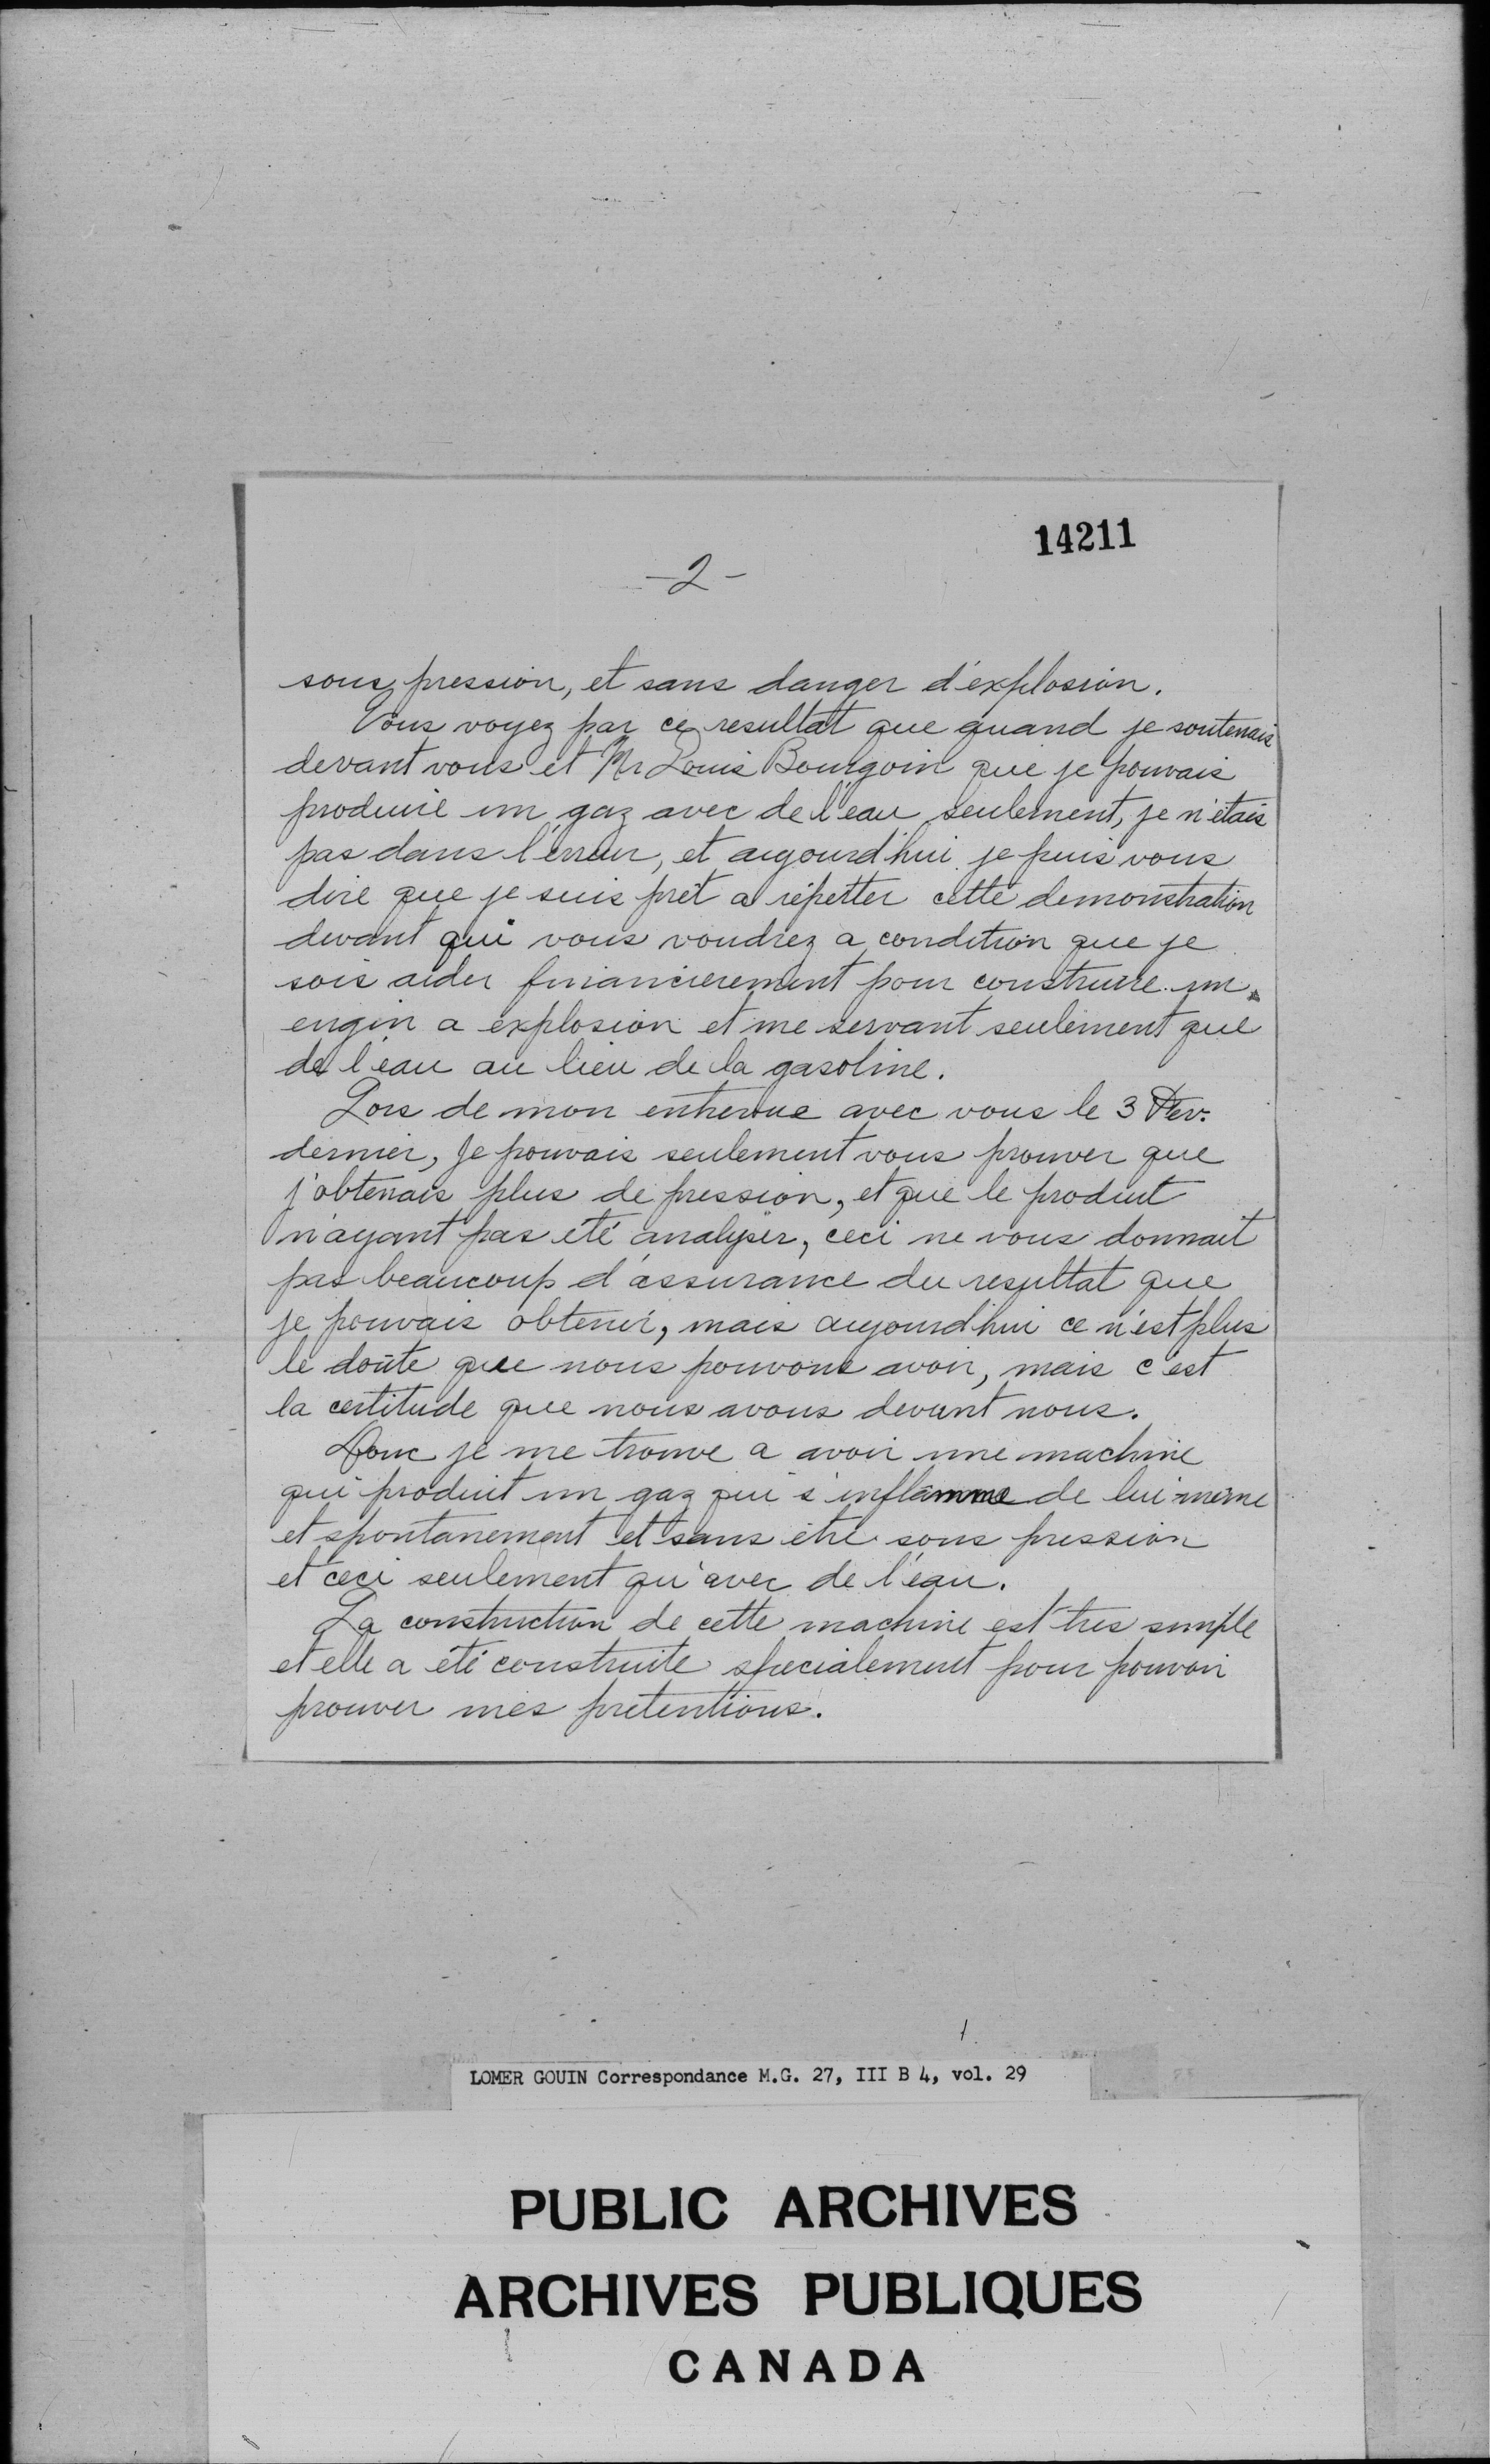 14211
-2-
sous pression, et sans danger d'explosion.
Vous voyez par ce resultat que quand je soutenais
devant vous et Mr Louis Bourgoin que je pouvais
produire un gaz avec de l'eau seulement, je n'étais
pas dans l'erreur, et aujourd'hui je puis vous
dire que je suis prêt a répetter cette demonstration
devant qui vous voudrez a condition que je
sois aider financierement pour construire un
engin a explosion et me servant seulement que
de l'eau au lieu de la gasoline.
Lors de mon entrevue avec vous le 3 Fev.
dernier, Je pouvais seulement vous prouver que
j'obtenais plus de pression, et que le produit
n'ayant pas été analyser, ceci ne vous donnait
pas beaucoup d'assurance du resultat que
je pouvais obtenir, mais aujourd'hui ce n'est plus
le doûte que nous pouvons avoir, mais c'est
la certitude que nous avons devant nous.
Donc je me trouve a avoir une machine
qui produit un gaz qui s'inflamme de lui-même
et spontanement et sans être sous pression
et ceci seulement qu'avec de l'eau.
La construction de cette machine est tres simple
et elle a été construite specialement pour pouvoir
prouver mes pretentions.
LOMER GOUIN Correspondance M.G. 27, III B 4, vol. 29
PUBLIC ARCHIVES
ARCHIVES PUBLIQUES
CANADA